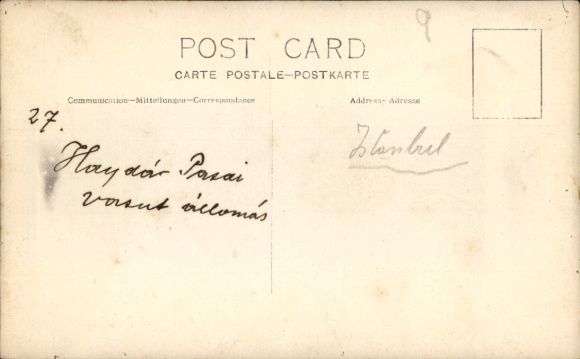 9
POST CARD
CARTE POSTALE—POSTKARTE
Communication—Mitteilungen—Correspondance
Address- Adresse
27.
Haydár Pasai
vasut állomás
Istanbul